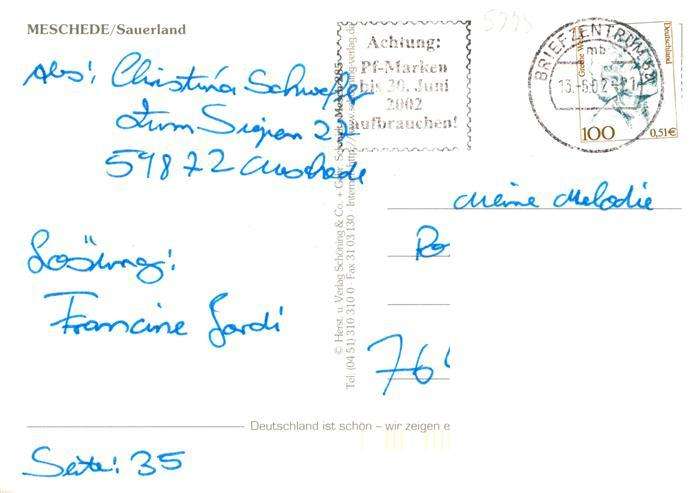 MESCHEDE/Sauerland
Abs! Christina
Zum Siepen 22
59872 Meschede
Lösung:
Francine Jordi
Seite: 35
Achtung:
Pf-Marken
bis 30. Juni
2002
aufbrauchen!
BRIEFZENTRUM
mb
Deutschland
100
0,51€
Meine Melodie
76
© Herst. u. Verlag Schöning & Co. + Gebr. Schmidt
Tel. (04 51) 310 310 0 · Fax 31 03 130 · Internet
Deutschland ist schön – wir zeigen e